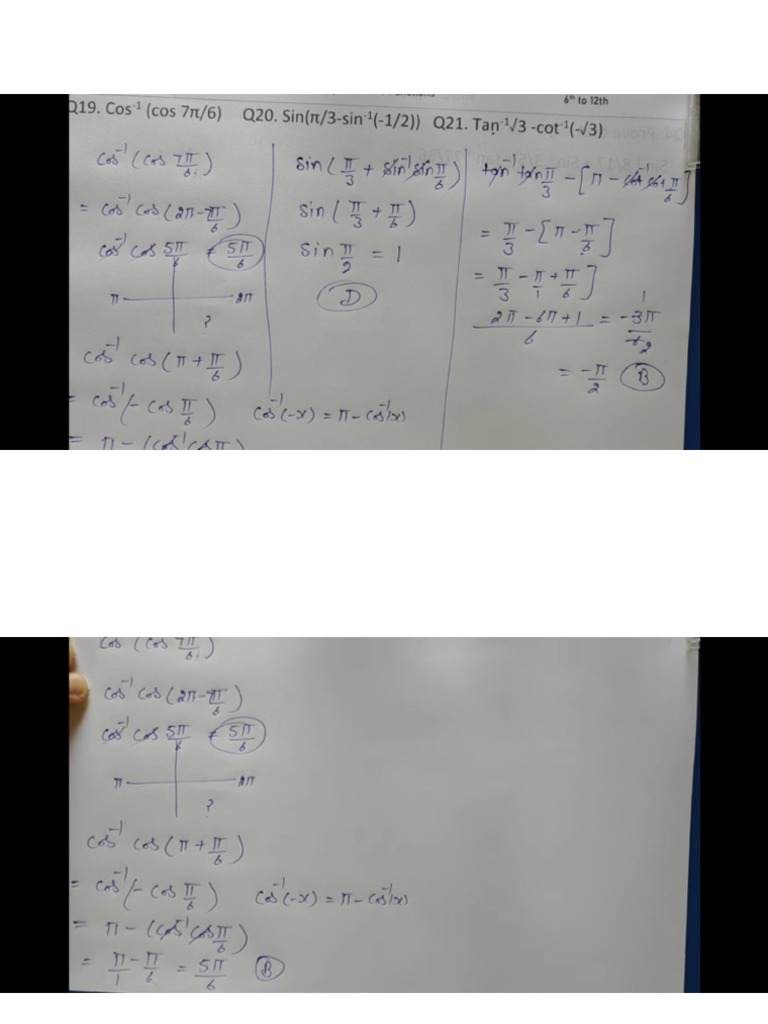 6th to 12th
Q19. Cos⁻¹ (cos 7π/6) Q20. Sin(π/3-sin⁻¹(-1/2)) Q21. Tan⁻¹√3 -cot⁻¹(-√3)
cos⁻¹(cos 7π/6)
= cos⁻¹ cos(2π - 7π/6)
cos⁻¹ cos 5π/6 = 5π/6
π 2π
?
cos⁻¹ cos(π + π/6)
= cos⁻¹(- cos π/6) cos⁻¹(-x) = π - cos⁻¹(x)
= π - (cos⁻¹ cos π
sin(π/3 + sin⁻¹ sin π/6)
sin(π/3 + π/6)
sin π/2 = 1
D
tan⁻¹ tan π/3 - [π - cot⁻¹ cot π/6]
= π/3 - [π - π/6]
= π/3 - π/1 + π/6]
2π - 6π + 1 / 6 = -3π/6 1 2
= -π/2 B
cos (cos 7π/6)
cos⁻¹ cos(2π - 7π/6)
cos⁻¹ cos 5π/6 = 5π/6
π 2π
?
cos⁻¹ cos(π + π/6)
= cos⁻¹(- cos π/6) cos⁻¹(-x) = π - cos⁻¹(x)
= π - (cos⁻¹ cos π/6)
= π/1 - π/6 = 5π/6 B